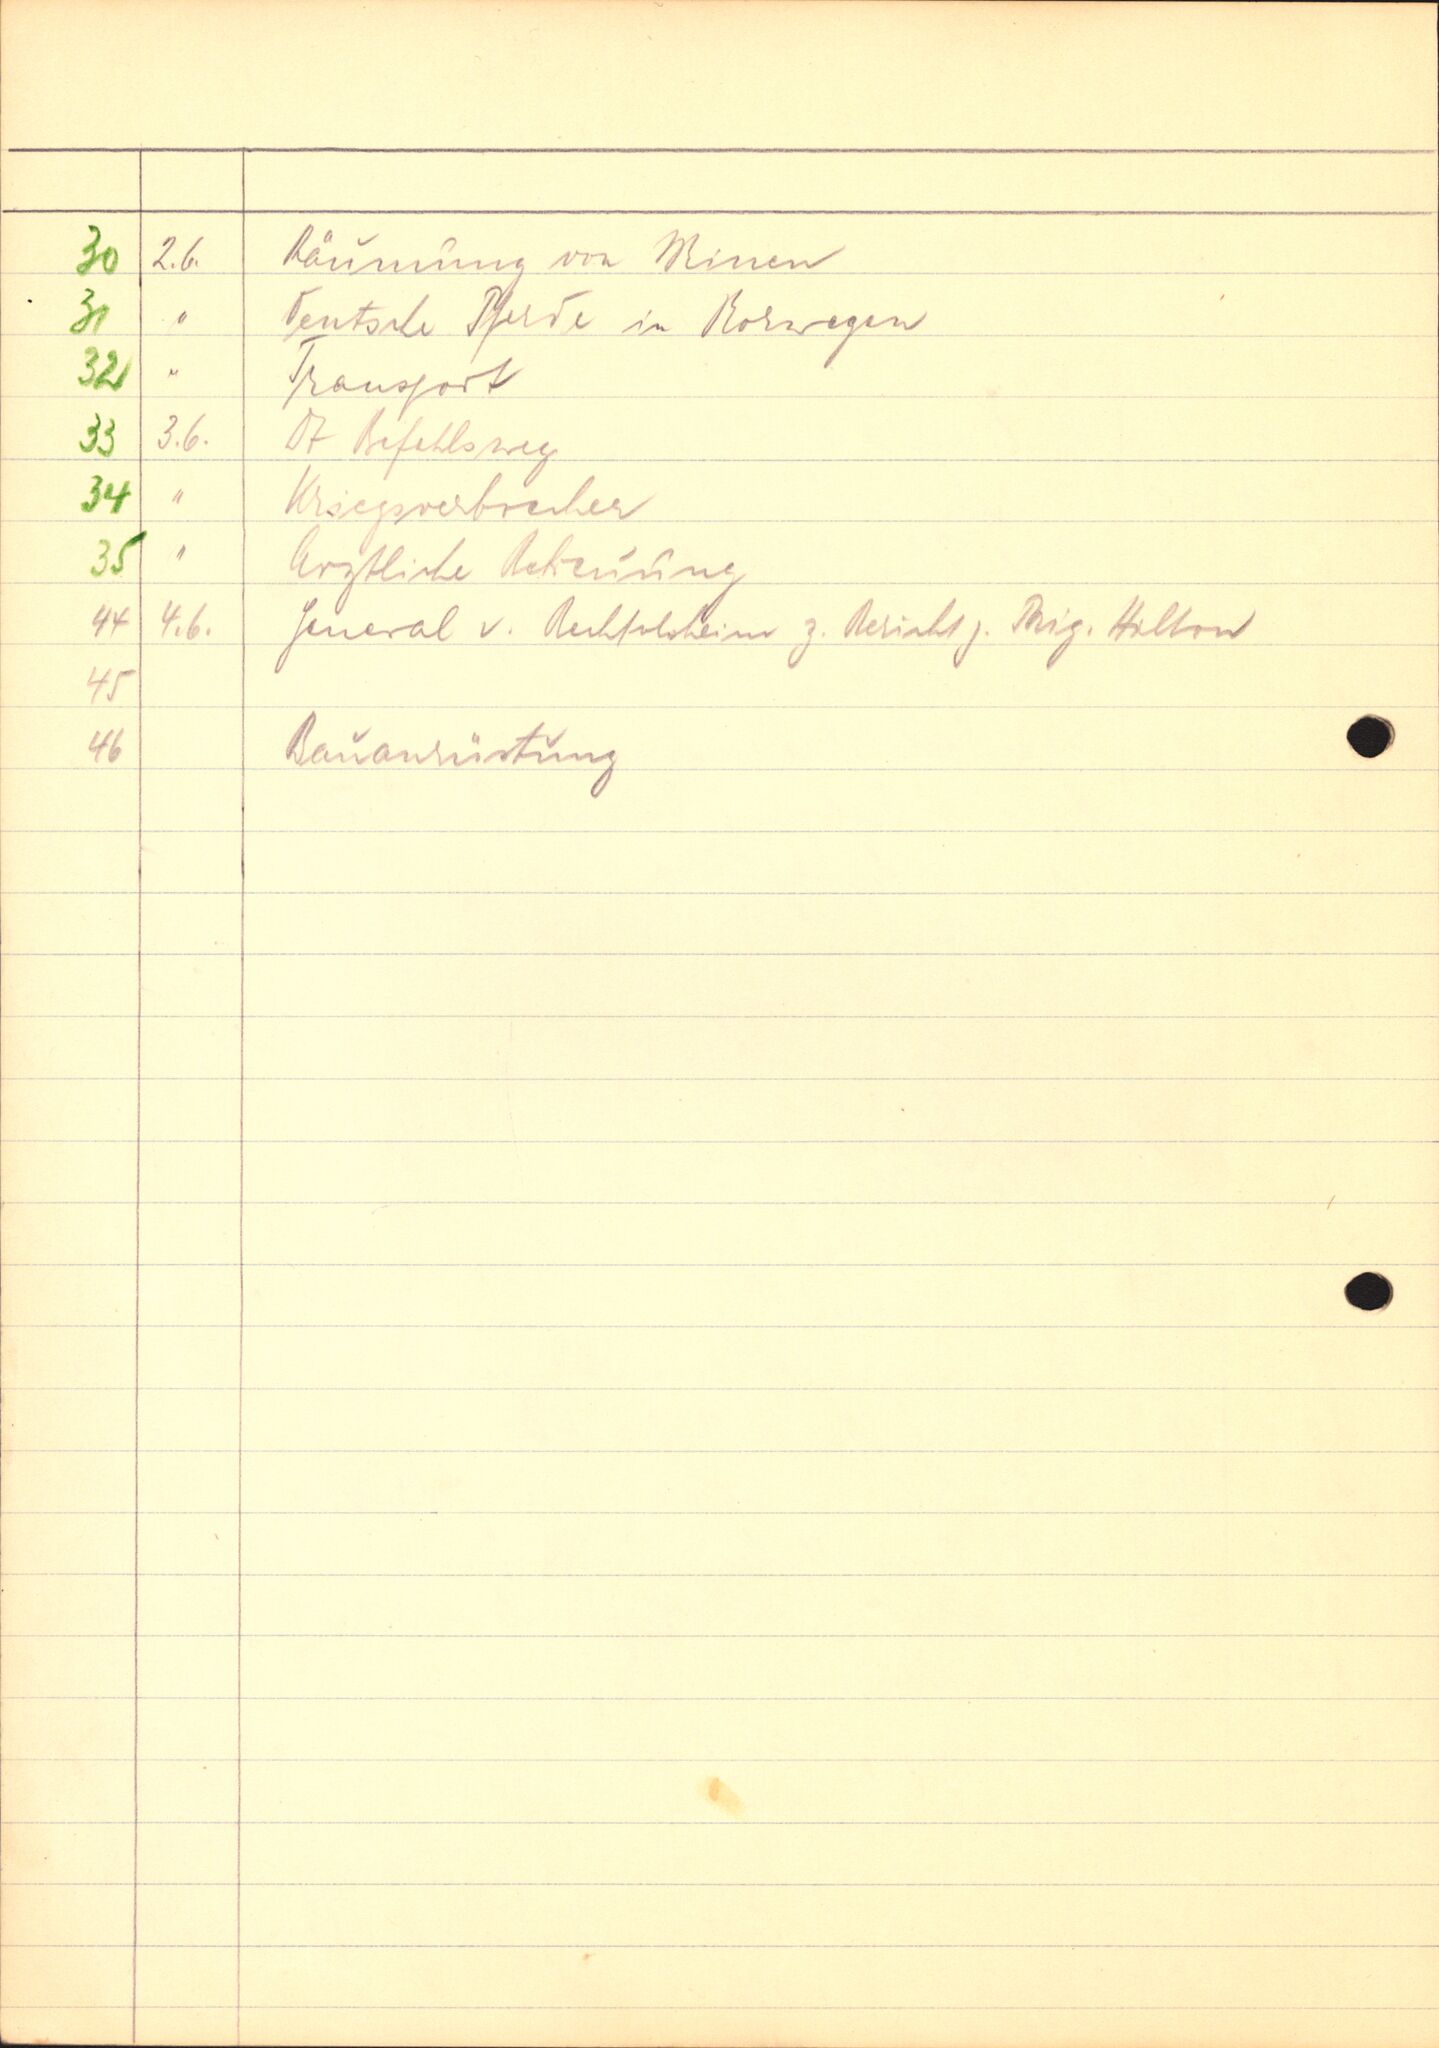 30 2.6. Räumung von Minen
31 " Deutsche Pferde in Norwegen
32 " Transport
33 3.6. Dt Befehlsweg
34 " Kriegsverbrecher
35 " Ärztliche Betreuung
44 4.6. General v. z. Bericht z. Brig. Hilton
45
46 Bauausrüstung